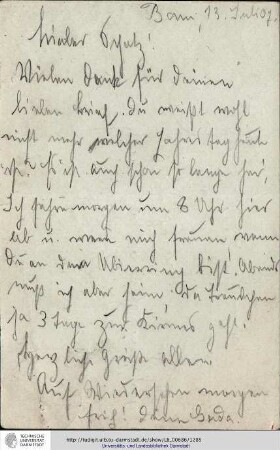 Bonn, 13. Juli 07.
Lieber Schatz!
Vielen Dank für deinen
lieben Brief. Du weißt wohl
nicht mehr welcher Jahrestag heute
ist. Es ist auch schon so lange her!
Ich fahre morgen um 8 Uhr hier
ab u. werde mich freuen wenn
du an dem bist. Abends
muß ich aber heim da Treudchen
ja 3 Tage zur Kirmes geht.
Herzliche Grüße allen.
Auf Wiedersehen morgen
früh! deine
TECHNISCHE
UNIVERSITÄT
DARMSTADT
http://tudigit.ulb.tu-darmstadt.de/show/Lit_00686/1285
Universitäts- und Landesbibliothek Darmstadt